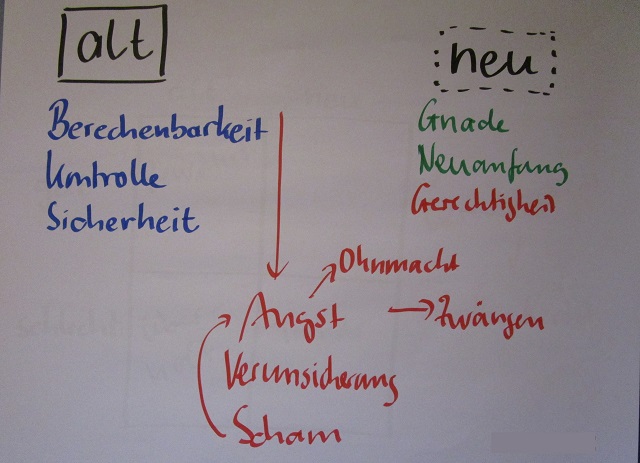 alt
neu
Berechenbarkeit
Kontrolle
Sicherheit
Gnade
Neuanfang
Gerechtigkeit
Ohnmacht
Angst
Zwängen
Verunsicherung
Scham